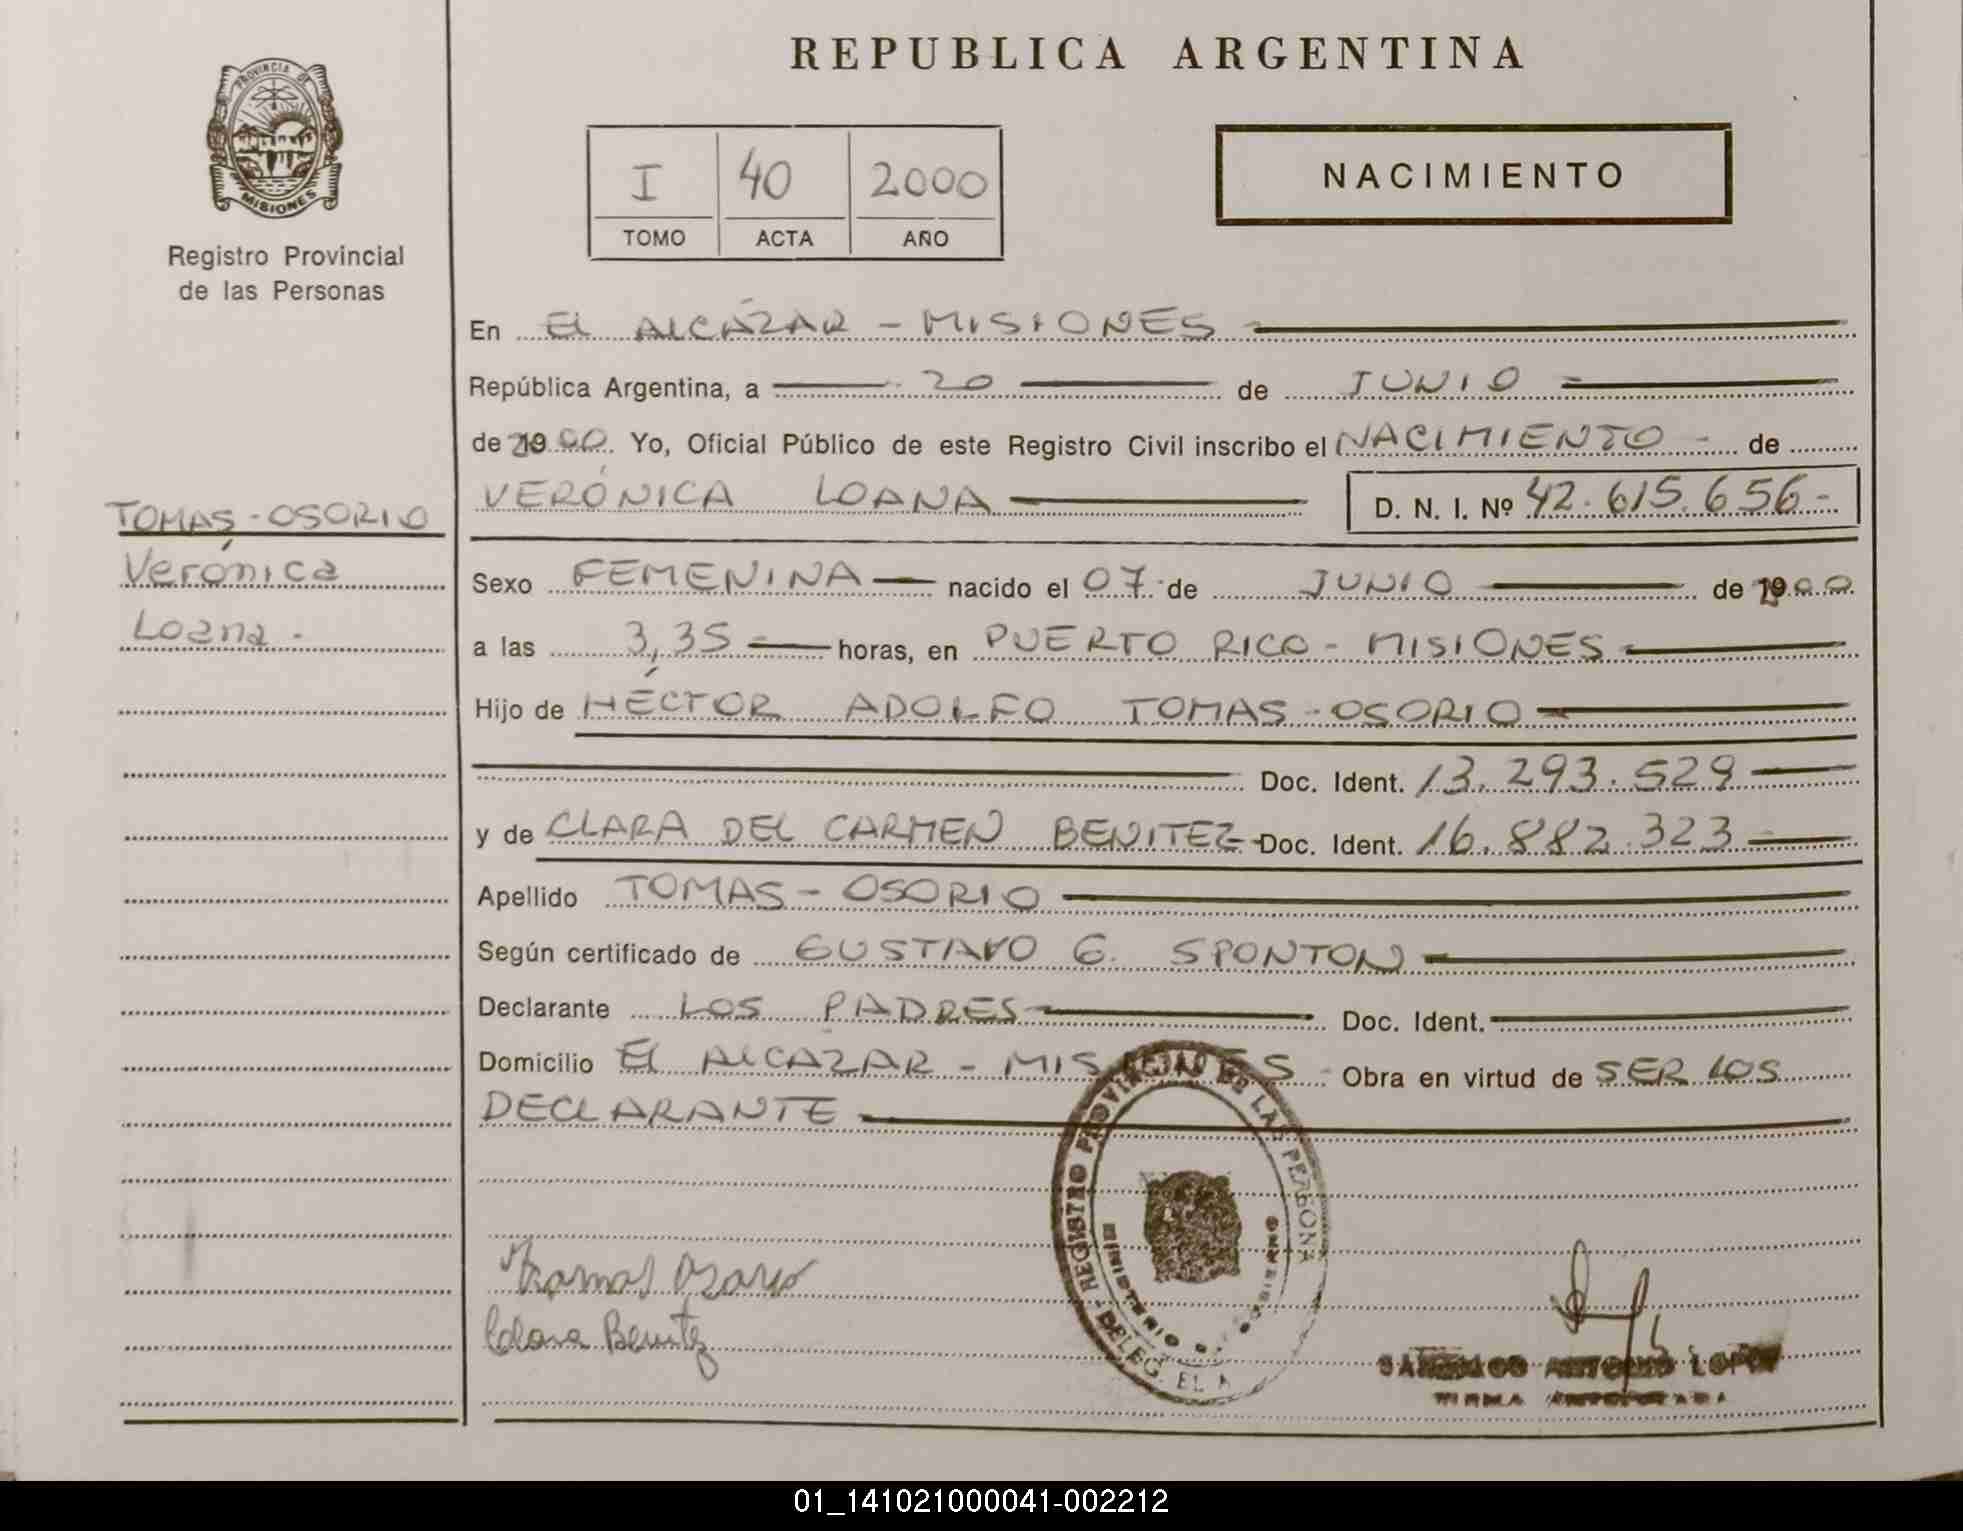 REPUBLICA ARGENTINA
PROVINCIA DE
MISIONES
Registro Provincial
de las Personas
I 40 2000
TOMO ACTA AÑO
NACIMIENTO
En EL ALCÁZAR - MISIONES
República Argentina, a 20 de JUNIO
de 2000. Yo, Oficial Público de este Registro Civil inscribo el NACIMIENTO - de
VERÓNICA LOANA D. N. I. Nº 42.615.656-
TOMAS-OSORIO
Verónica
Loana.
Sexo FEMENINA nacido el 07 de JUNIO de 2000
a las 3,35 horas, en PUERTO RICO - MISIONES
Hijo de HÉCTOR ADOLFO TOMAS-OSORIO
Doc. Ident. 13.293.529
y de CLARA DEL CARMEN BENITEZ Doc. Ident. 16.882.323
Apellido TOMAS - OSORIO
Según certificado de GUSTAVO G. SPONTON
Declarante LOS PADRES Doc. Ident.
Domicilio EL ALCAZAR - MISIONES - Obra en virtud de SER LOS
DECLARANTE
REGISTRO PROVINCIAL DE LAS PERSONA
MINISTERIO DE GOBIERNO
DELEG. EL A
Tomas Osorio
Clara Benitez
ANTONIO LOPEZ
FIRMA AUTORIZADA
01_141021000041-002212